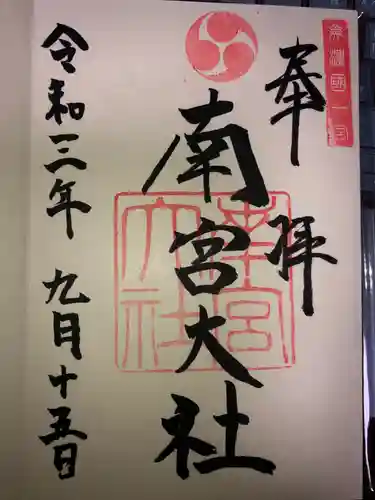 美濃國一宮
奉拝
南宮大社
南宮大社
令和三年九月十五日